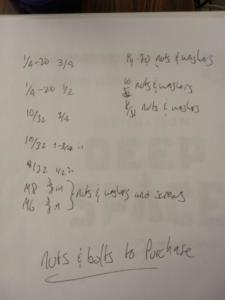 1/4-20 3/4 1/4-20 nuts & washers
1/4-20 1/2 10/32 nuts & washers
10/32 3/4 8/32 nuts & washers
10/32 1-3/4"
8/32 1/2"
M8 nuts & washers and screws
M6
nuts & bolts to purchase